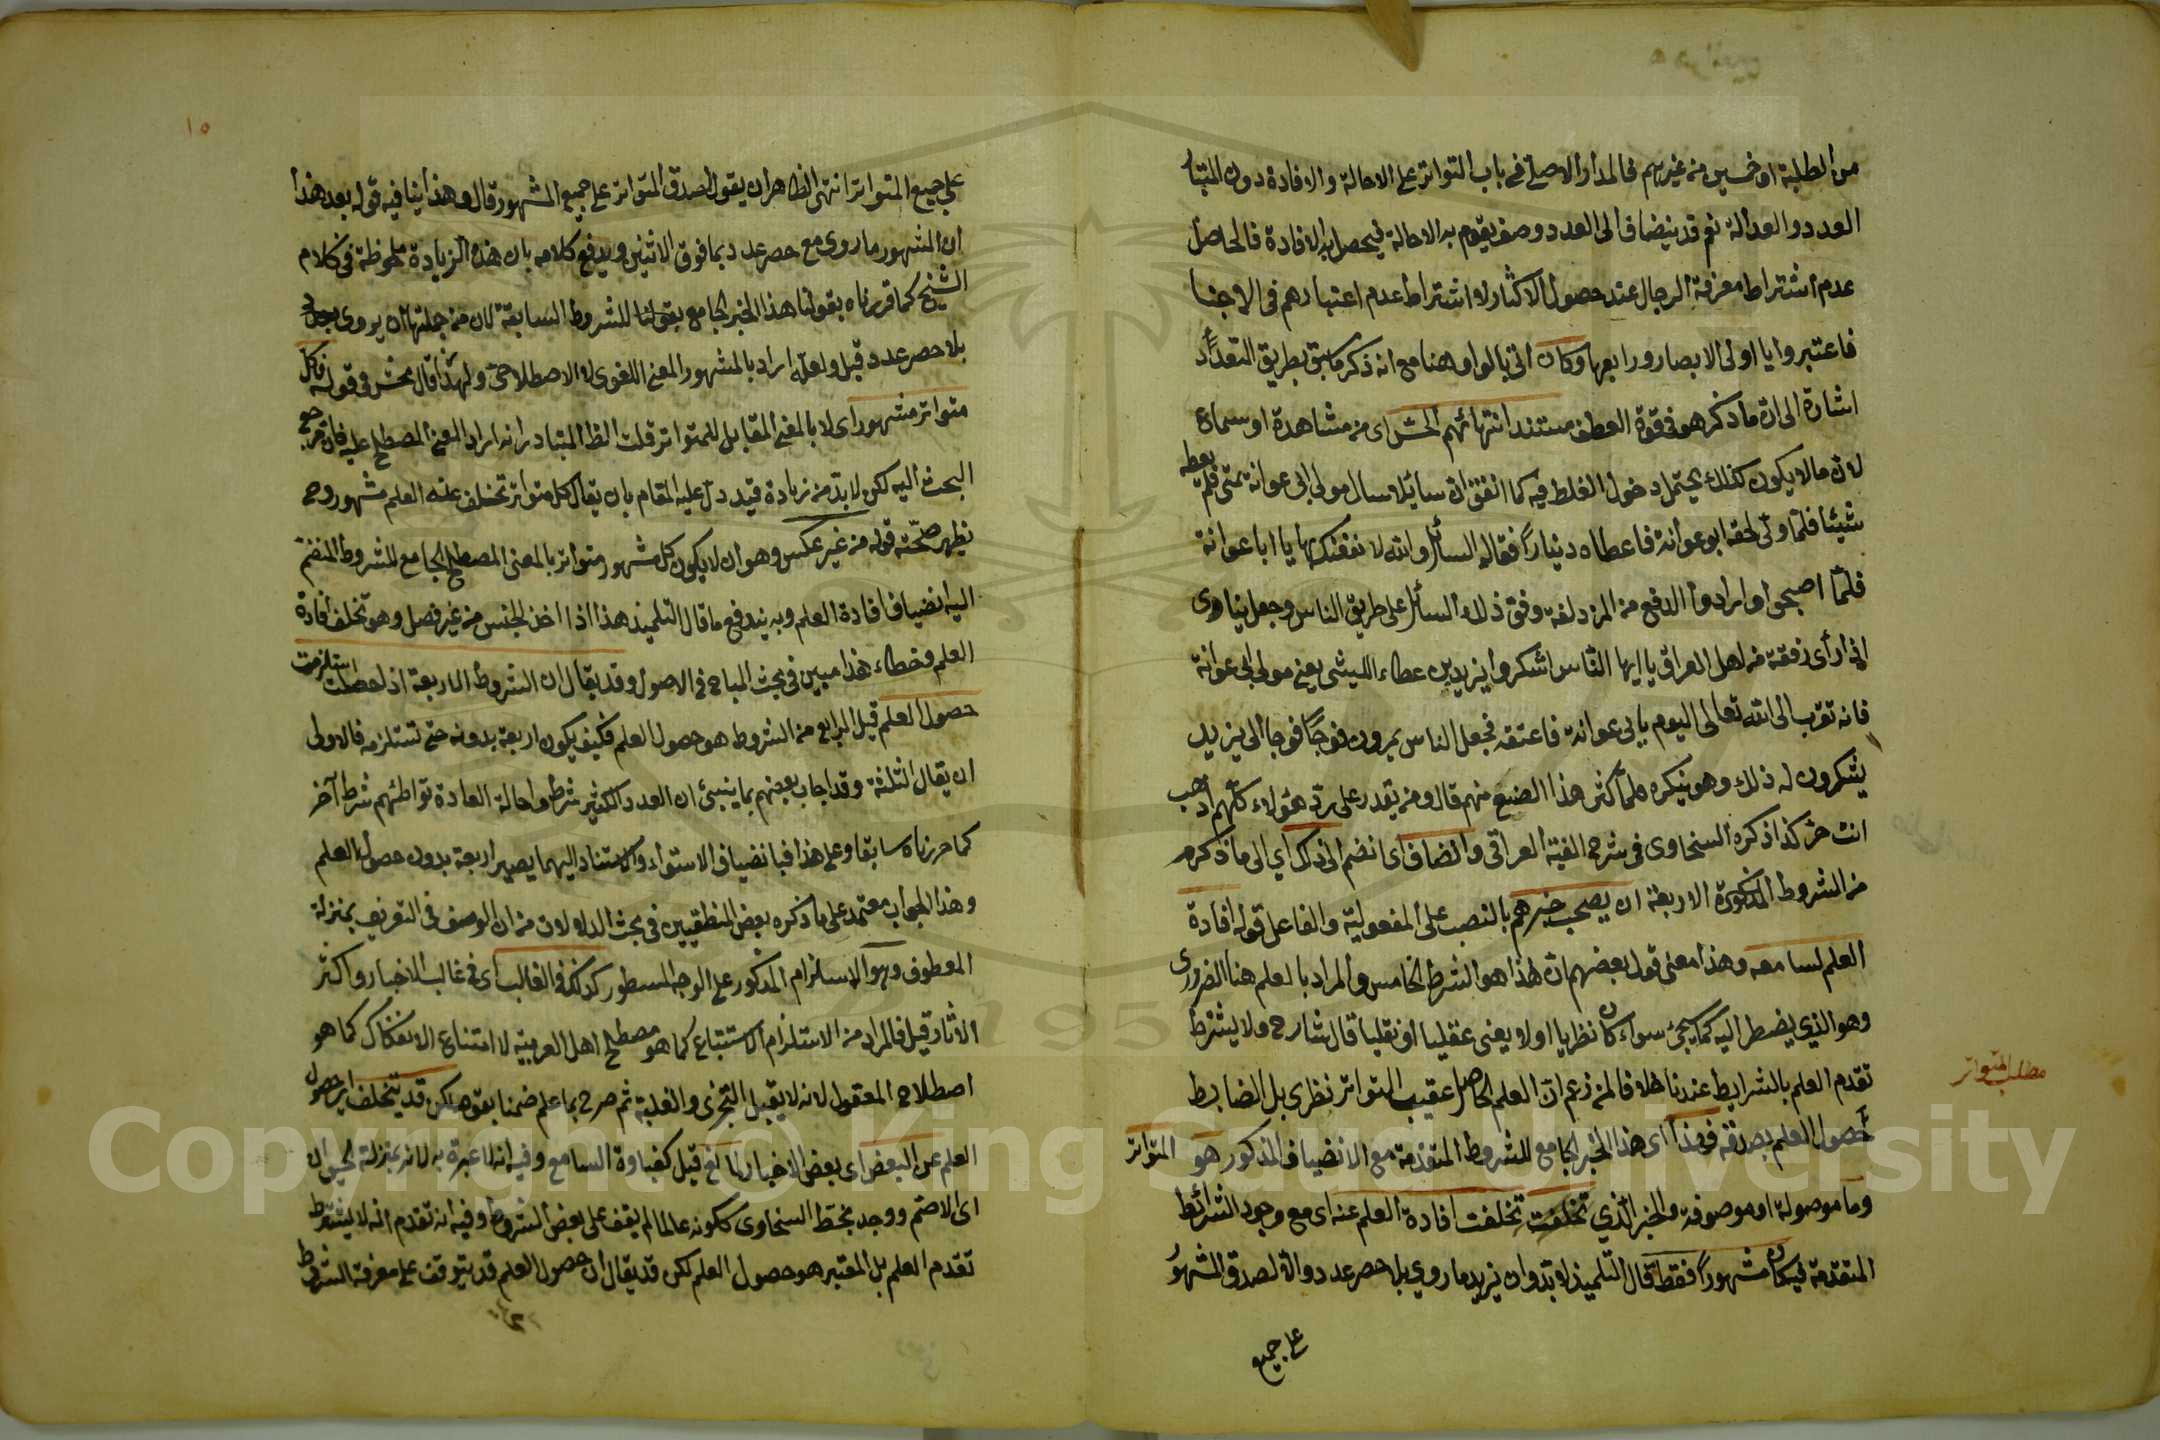 من الطلبة او خمسين من غيرهم فالمدار الاصلي في باب التواتر على الاحالة والافادة دون المتبا
العدد والعدالة نعم قد ينضاف الى العدد وصف يقوم به الاحالة فيحصل به الافادة فالحاصل
عدم اشتراط معرفة الرجال عند حصول الاكثار لا اشتراط عدم اعتبارهم في الاخبار
فاعتبروا يا اولى الابصار ورابعها وكان اتى بالواو هنا مع انه ذكر ما سبق بطريق التعداد
اشارة الى ان ما ذكر هو في قوة العطف مستند انتهائهم الحسّ اى من مشاهدة او سماع
لان ما لا يكون كذلك يحتمل دخول الغلط فيه كما اتفق ان سايلا سال مولى ابى عوانة بمنى فلم يعطه
شيئا فلمّا ولّى لحقه ابو عوانة فاعطاه دينارًا فقال له السائل والله لانفعنك بها يا ابا عوانة
فلمّا اصبحوا وارادوا الدفع من المزدلفة وقف ذلك السائل على طريق الناس وجعل ينادى
اذا رأى رفقة من اهل العراق يا ايها النّاس اشكروا يزيد بن عطاء الليثى يعنى مولى ابى عوانة
فانه تقرّب الى الله تعالى اليوم بابى عوانة فاعتقه فجعل الناس يمرون فوجًا فوجًا الى يزيد
يشكرون له ذلك وهو ينكره فلمّا كثر هذا الصنيع منهم قال ومن يقدر على ردّ هؤلاء كلّهم اذهب
انت حرّ كذا ذكره السخاوى في شرح الفية العراقى وانضاف اى انضم الى ذلك اي الى ما ذكره
من الشروط المذكورة الاربعة ان يصحب خبرهم بالنصب على المفعولية والفاعل قوله افادة
العلم لسامعه وهذا معنى قول بعضهم ان هذا هو الشرط الخامس والمراد بالعلم هنا الضرورى
وهو الذي يضطر اليه كما يجئ سواء كان نظريا اولا يعنى عقليا او نقليا قال شارح ولا يشترط
تقدم العلم بالشرايط عندنا خلافا لمن زعم ان العلم الحاصل عقيب المتواتر نظرى بل الضابط
مطلب المتواتر
حصول العلم بصدقه فهذا اى هذا الخبر الجامع للشروط المتقدمة مع الانضياف المذكور هو المتواتر
وما موصولة او موصوفة والخبر الّذي تخلفت تخلفت افادة العلم عنه اى مع وجود الشرائط
المتقدمة فيه كان مشهورًا فقط قال التلميذ لابدّ وان يزيد ما روي بلا حصر عدد والا لصدق المشهور
على جميع
١٥
على جميع المتواتر انتهى الظاهر ان يقول لصدق المتواتر على جميع المشهور قال وهذا ينافيه قوله بعد هذا
ان المشهور ما روى مع حصر عدد بما فوق الاثنين ويدفع كلامه بان هذه الزيادة ملحوظة في كلام
الشيخ كما قررناه بقولنا هذا الخبر الجامع بقولنا للشروط السابقة لان من جملتها ان يروى
بلا حصر عدد قيل ولعله اراد بالمشهور المعنى اللغوى لا الاصطلاحىّ ولهذا قال محش في قوله فكل
متواتر مشهور اى لا بالمعنى المقابل للمتواتر قلت الظ المتبادر انه اراد المعنى المصطلح عليه فان مرجع
البحث اليه لكن لابدّ من زيادة قيد دلّ عليه المقام بان يقال كل متواتر تخلف عنه العلم مشهور وح
يظهر صحّة قوله من غير عكس وهو ان لا يكون كل مشهور متواتر بالمعنى المصطلح الجامع للشروط المنضمّ
اليه انضياف افادة العلم وبه يندفع ما قال التلميذ هذا اذا اخذ الجنس من غير فصل وهو تخلف افادة
العلم وخطاء هذا مبين في بحث المباح في الاصول وقد يقال ان الشروط الاربعة اذا حصلت استلزمت
حصول العلم قيل الرابع من الشروط هو حصول العلم فكيف يكون اربعة بدونه حتى تستلزمه فالاولى
ان يقال الثلثة وقد اجاب بعضهم بما ينبئ ان العدد الكثير شرط واحالة العادة تواطئهم شرط آخر
كما حررناه سابقا وعلى هذا فبانضياف الاستواء والاستناد اليهما يصير اربعة بدون حصول العلم
وهذا الجواب معتمد على ما ذكره بعض المنطقيين في بحث الدلالات من ان الوصف في التعريف بمنزلة
المعطوف وهو الاستلزام المذكور على الوجه المسطور كذلك في الغالب اى في غالب الاخبار واكثر
الاثار قيل فالمراد من الاستلزام الاستتباع كما هو مصطلح اهل العربية لا امتناع الانفكاك كما هو
اصطلاح المعقول لانه لا يقبل التجزى والغلبة ثم صرح بما علم ضمنا بقوله لكن قد يتخلف اى حصول
العلم عن البعض اى بعض الاخبار لمانع قيل كغباوة السامع وفيه انه لا عبرة به لانه بمنزلة الحيوان
اى الاصمّ ووجد بخط السخاوى ككونه عالما لم يقف على بعض الشروط وفيه انه تقدم انه لا يشترط
تقدم العلم بل المعتبر هو حصول العلم لكن قد يقال ان حصول العلم قد يتوقف على معرفة الشرط